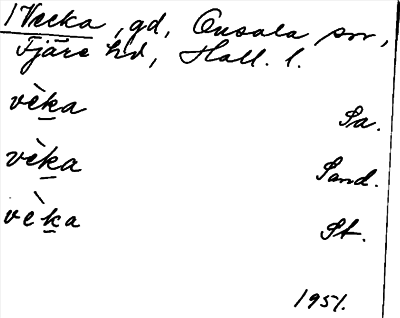 1 Vecka, gd, Onsala sn,
Fjäre hd, Hall. l.
vèḵa Sa.
vèḵa Sand.
vèḵa St.
1951.